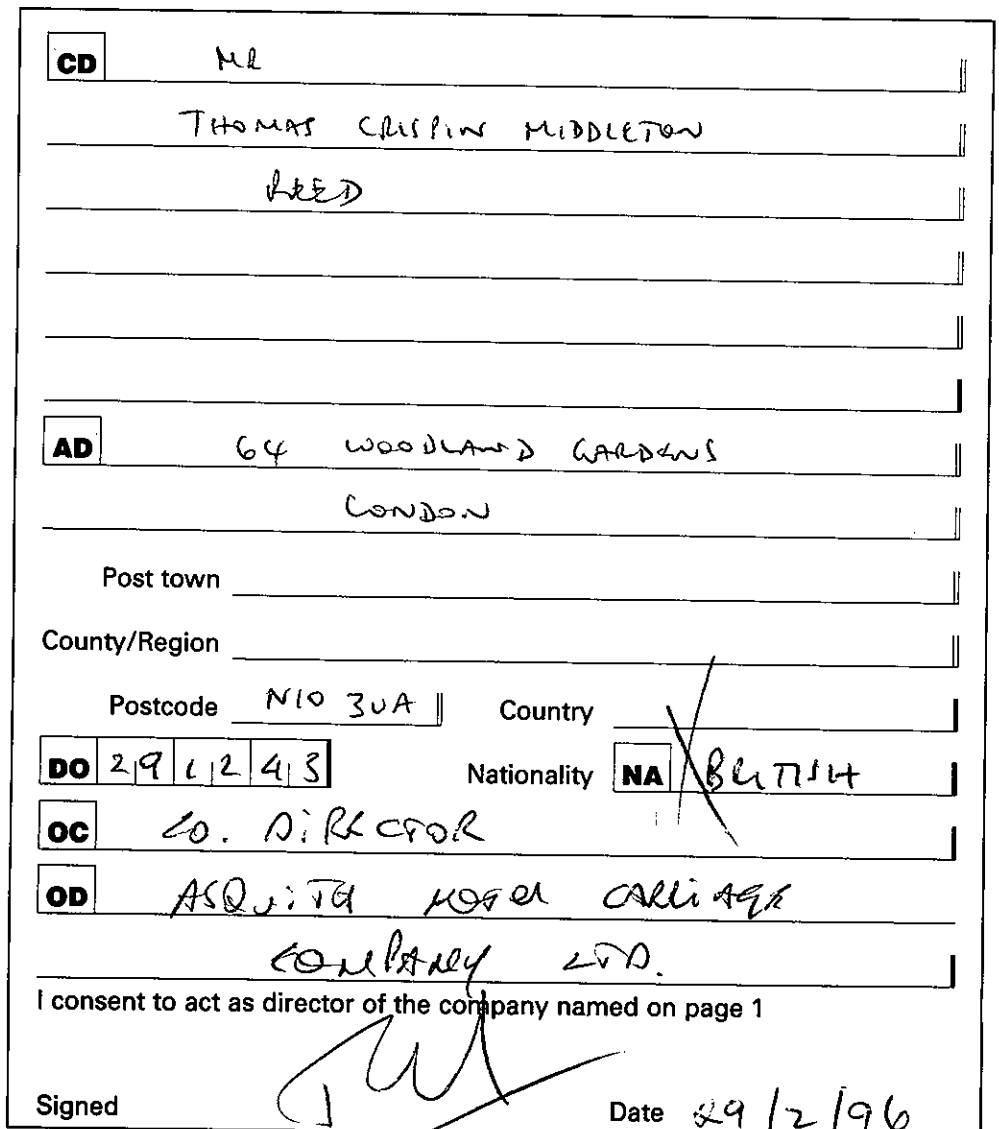 CD MR
THOMAS CRISPIN MIDDLETON
REED
AD 64 WOODLAND GARDENS
LONDON
Post town
County/Region
Postcode N10 3UA Country
DO 2 9 1 2 4 3 Nationality NA BRITISH
OC CO. DIRECTOR
OD ASQUITH MOTOR CARRIAGE
COMPANY LTD.
I consent to act as director of the company named on page 1
Signed Date 29/2/96